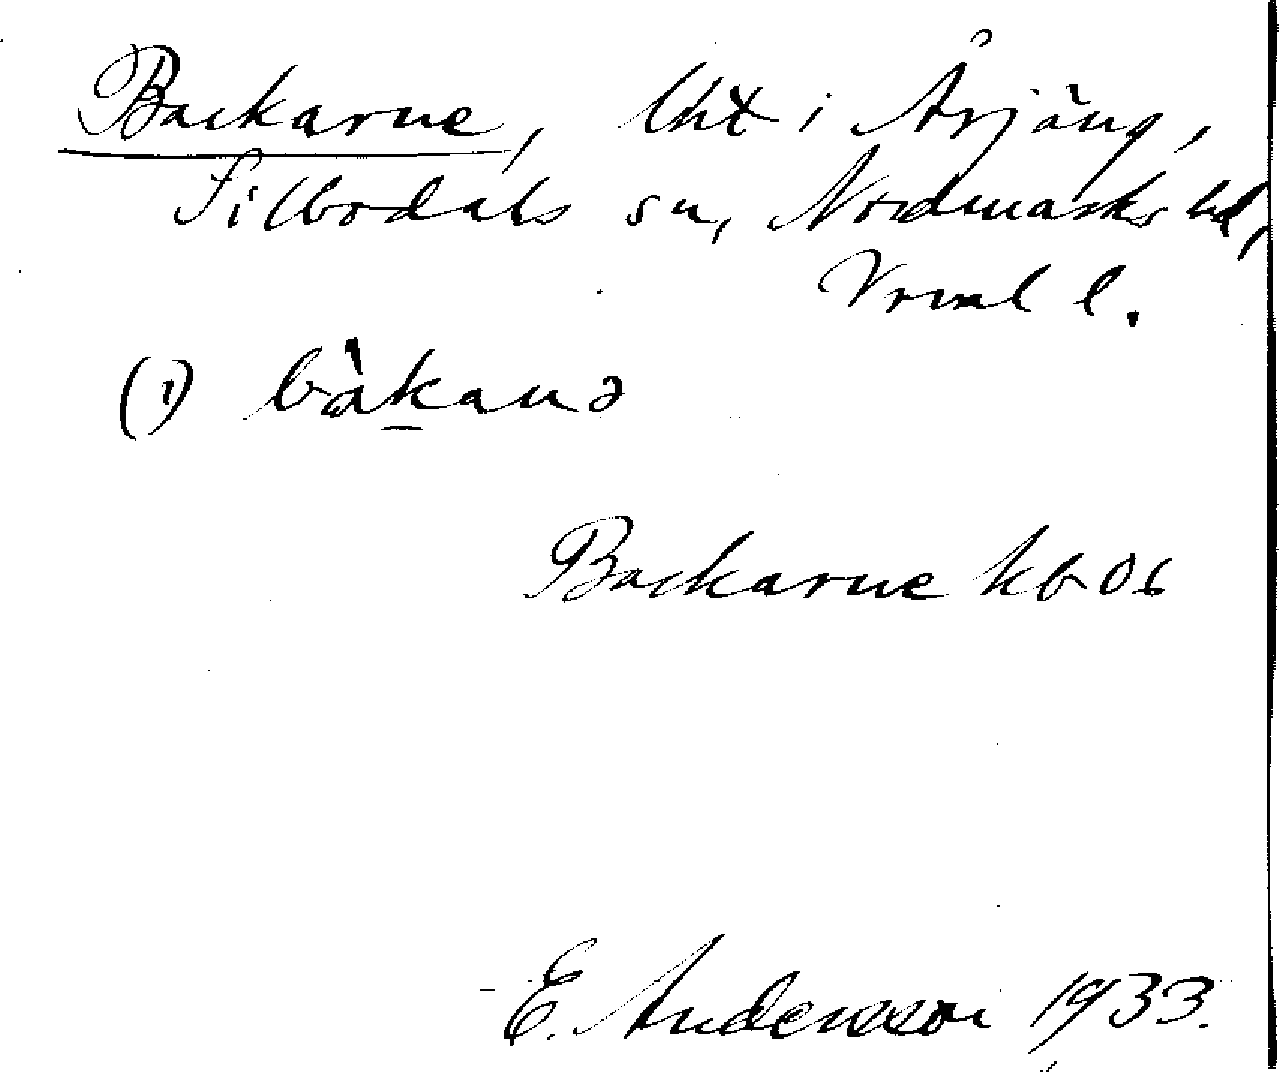 Backarne, lht i Årjäng,
Silbodals sn, Nordmarks hd,
Vrml l.
(i) bàkanə
Backarne kb 06
E. Andersson 1933.